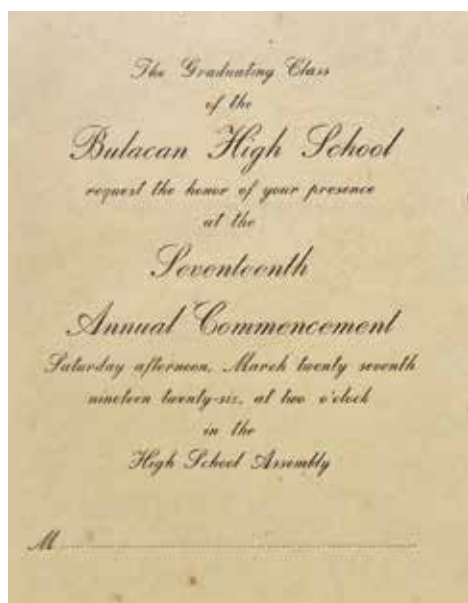 The Graduating Class
of the
Bulacan High School
request the honor of your presence
at the
Seventeenth
Annual Commencement
Saturday afternoon, March twenty seventh
nineteen twenty-six, at two o'clock
in the
High School Assembly
M